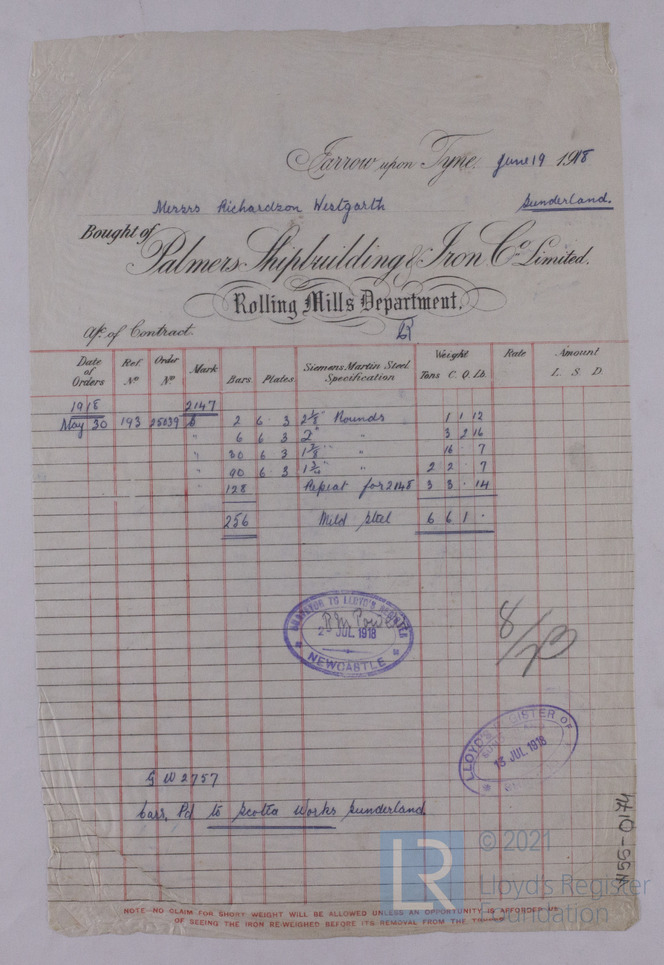 Jarrow upon Tyne. June 19 1918
Messrs Richardson Westgarth Sunderland.
Bought of
Palmers Shipbuilding & Iron Co. Limited.
Rolling Mills Department.
A/c. of Contract.
Date of Orders Ref. No Order No Mark Bars. Plates. Siemens Martin Steel Specification Weight Tons C. Q. Lb. Rate Amount L. S. D.
1918 2147
May 30 193 25039 2 6 3 2 1/8" Rounds 1 1 12
" 6 6 3 2" " 3 2 16
" 30 6 3 " 16 . 7
" 90 6 3 1 3/4" " 2 2 . 7
" 128 Repeat for 2148 3 3 . 14
256 Mild Steel 6 6 1 .
SURVEYOR TO LLOYD'S REGISTER
JUL 1918
NEWCASTLE
LLOYD'S REGISTER OF
13 JUL 1918
G W 2757
Carr. Pd to Scotia Works Sunderland.
W55-0174
LR
© 2021
Lloyd's Register
Foundation
NOTE—NO CLAIM FOR SHORT WEIGHT WILL BE ALLOWED UNLESS AN OPPORTUNITY IS AFFORDED US
OF SEEING THE IRON RE-WEIGHED BEFORE ITS REMOVAL FROM THE